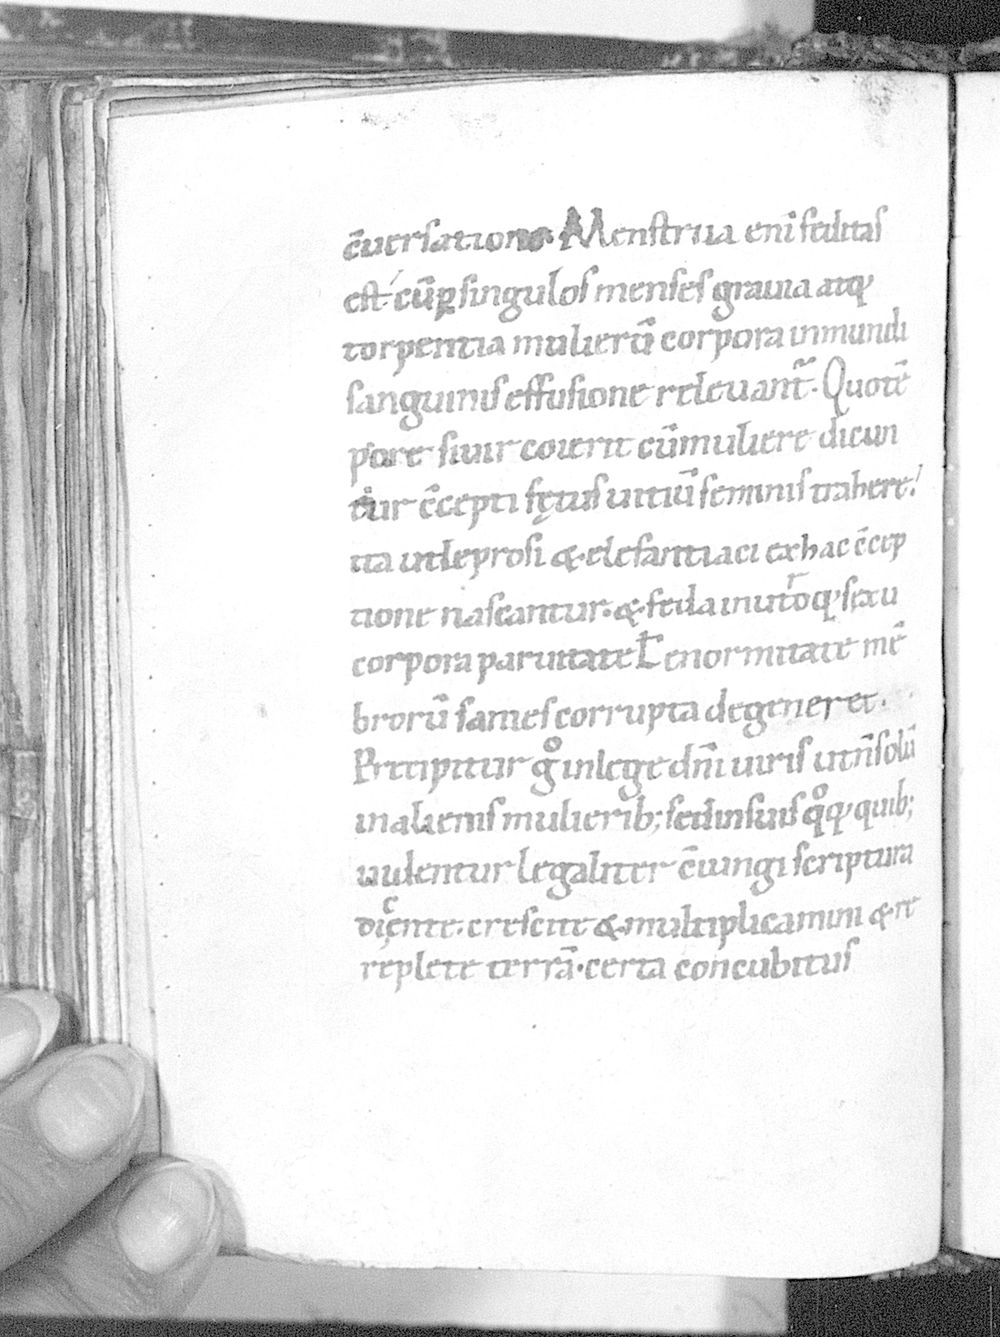 c̄uersatione Menstrua eni̅ feditas
est cu̅ ꝑ singulos menses grauia atq;
torpentia mulieru̅ corpora inmundi
sanguinis effusione releuant̅. Quote̅
pore si uir coierit cu̅ muliere dicun
tur c̄cepti fętus uitiu̅ seminis trahere!
ita ut leprosi & elefantiaci ex hac c̄cep
tione nascantur. & feda in utroq; sexu
corpora paruitate ł enormitate me̅
broru̅ sanies corrupta degeneret.
Precipitur gͦ in lege dn̅i uiris ut n̅ solu̅
in alienis mulierib; sed in suis qͦq; quib;
uidentur legaliter c̄iungi scriptura
dicente. crescite & multiplicamini & re
replete terra̅. certa concubitus